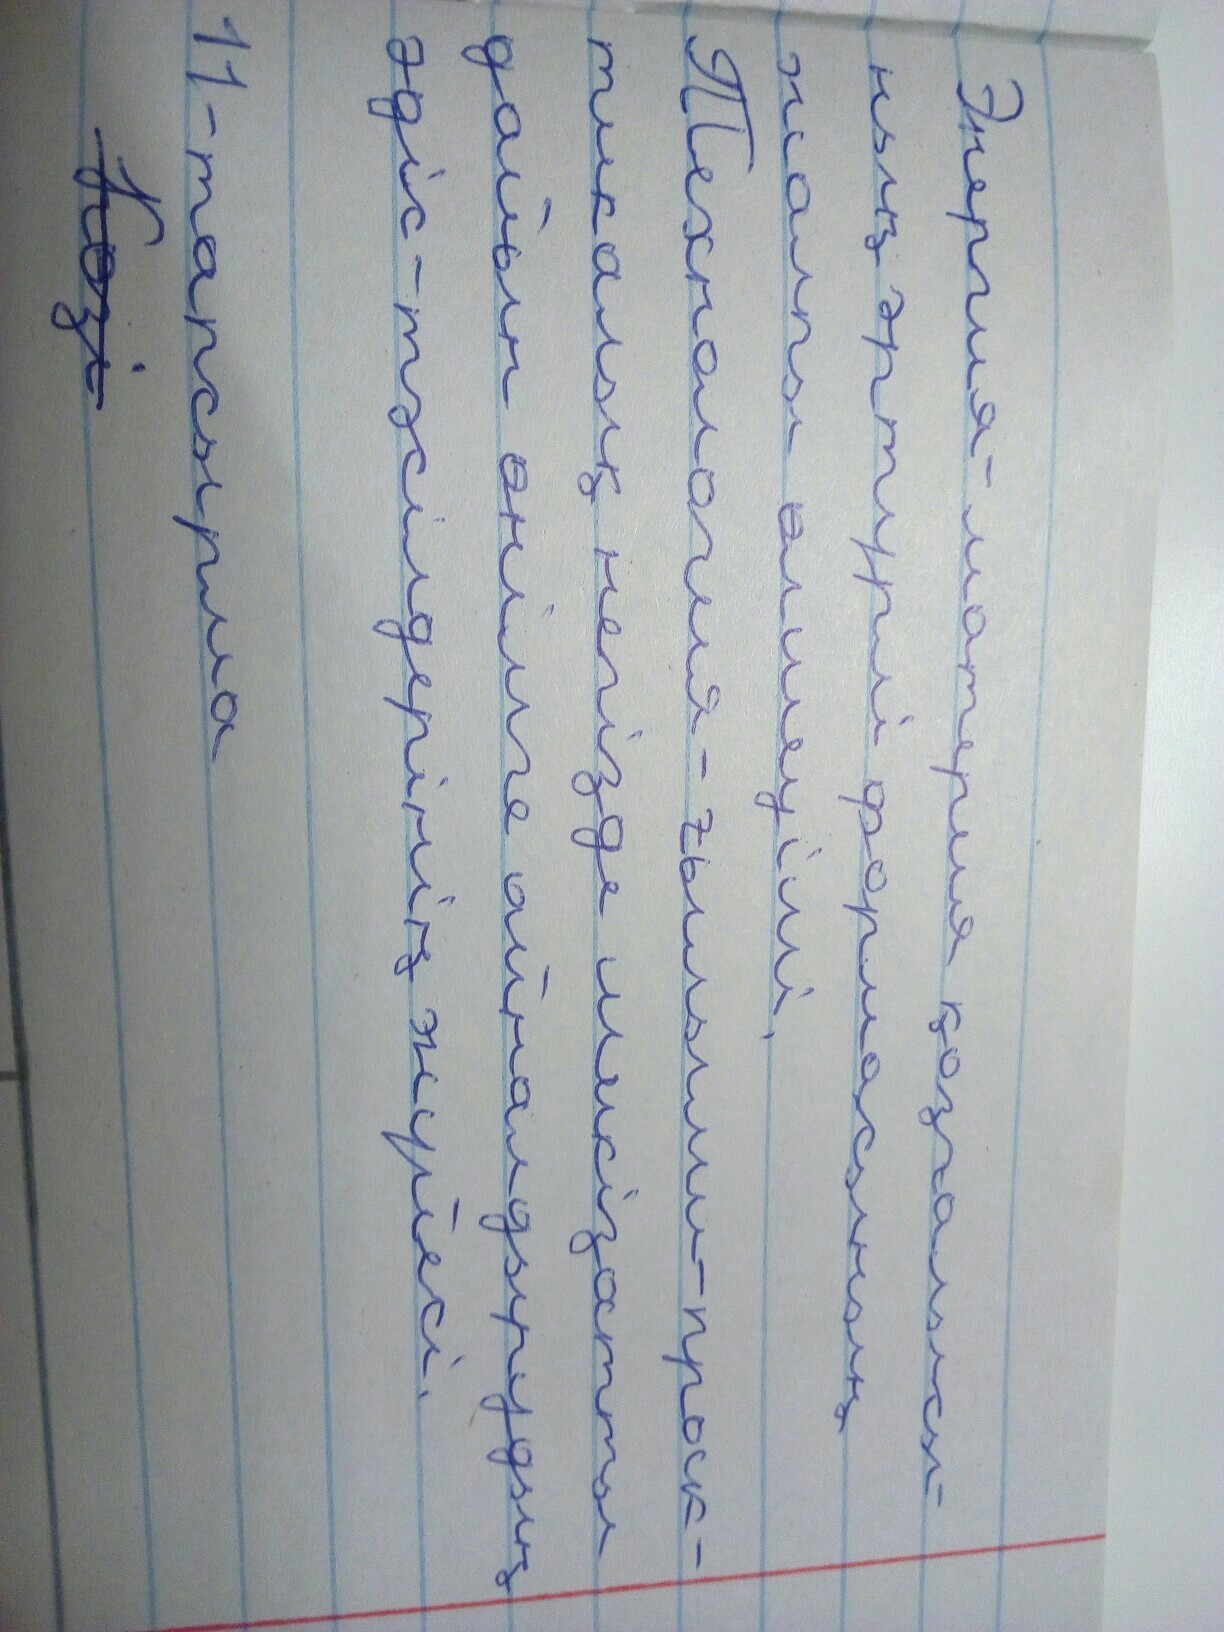 Энергия-материя қозғалысы-
ның әртүрлі формасының
жалпы өлшеуіші.
Технология-ғылыми-прак-
тикалық негізде шикізатты
дайын өнімге айналдырудың
әдіс-тәсілдерінің жүйесі.
11-тапсырма